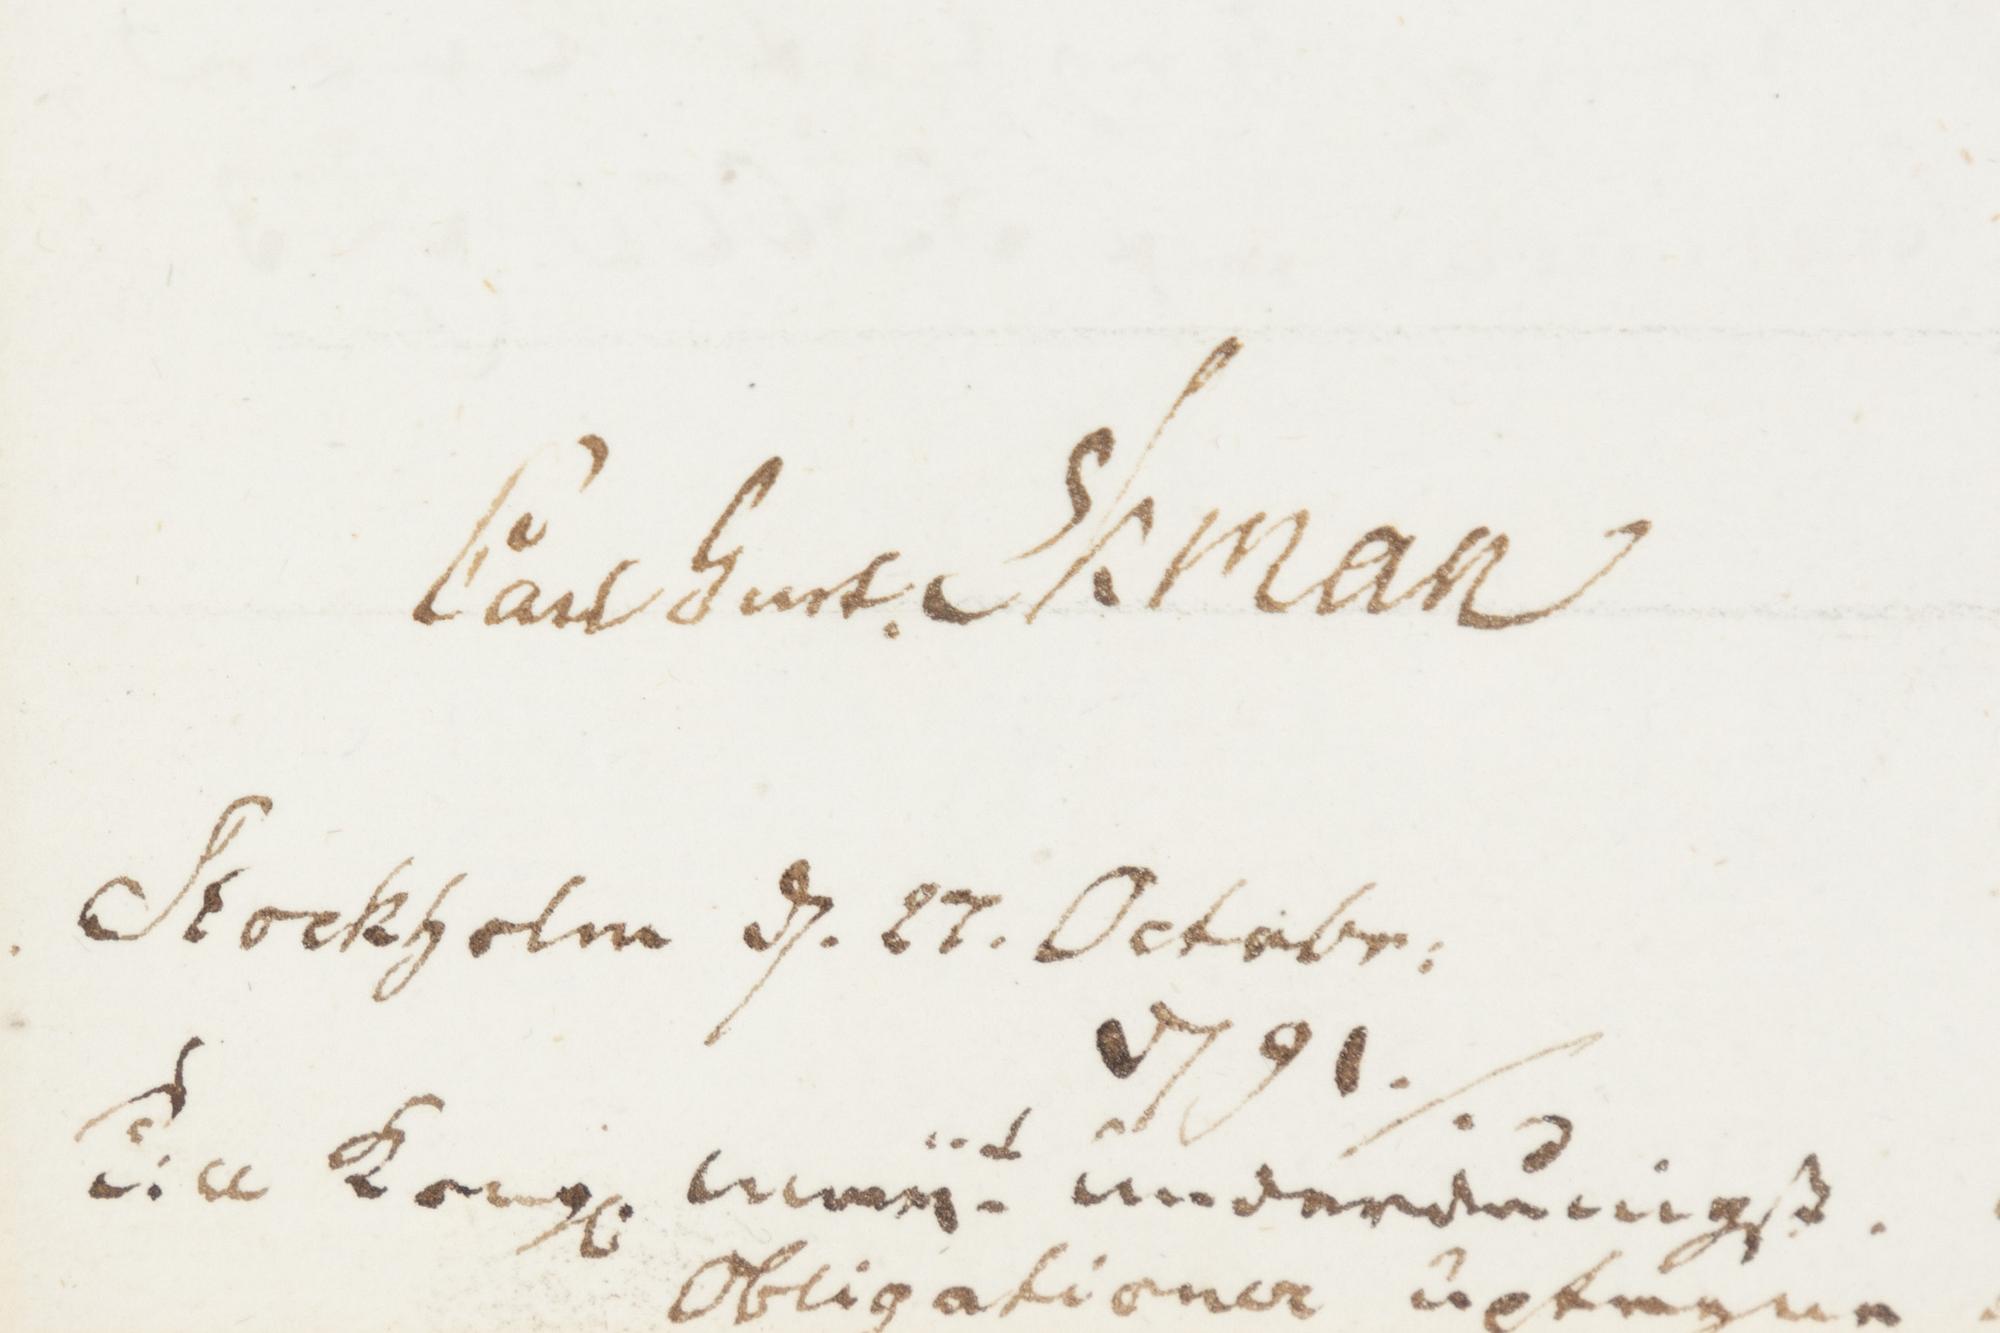 Carl Gust. Ekman
Stockholm d. 27. Octobr:
1791.
Till Kongl. underdånigst.
Obligationer